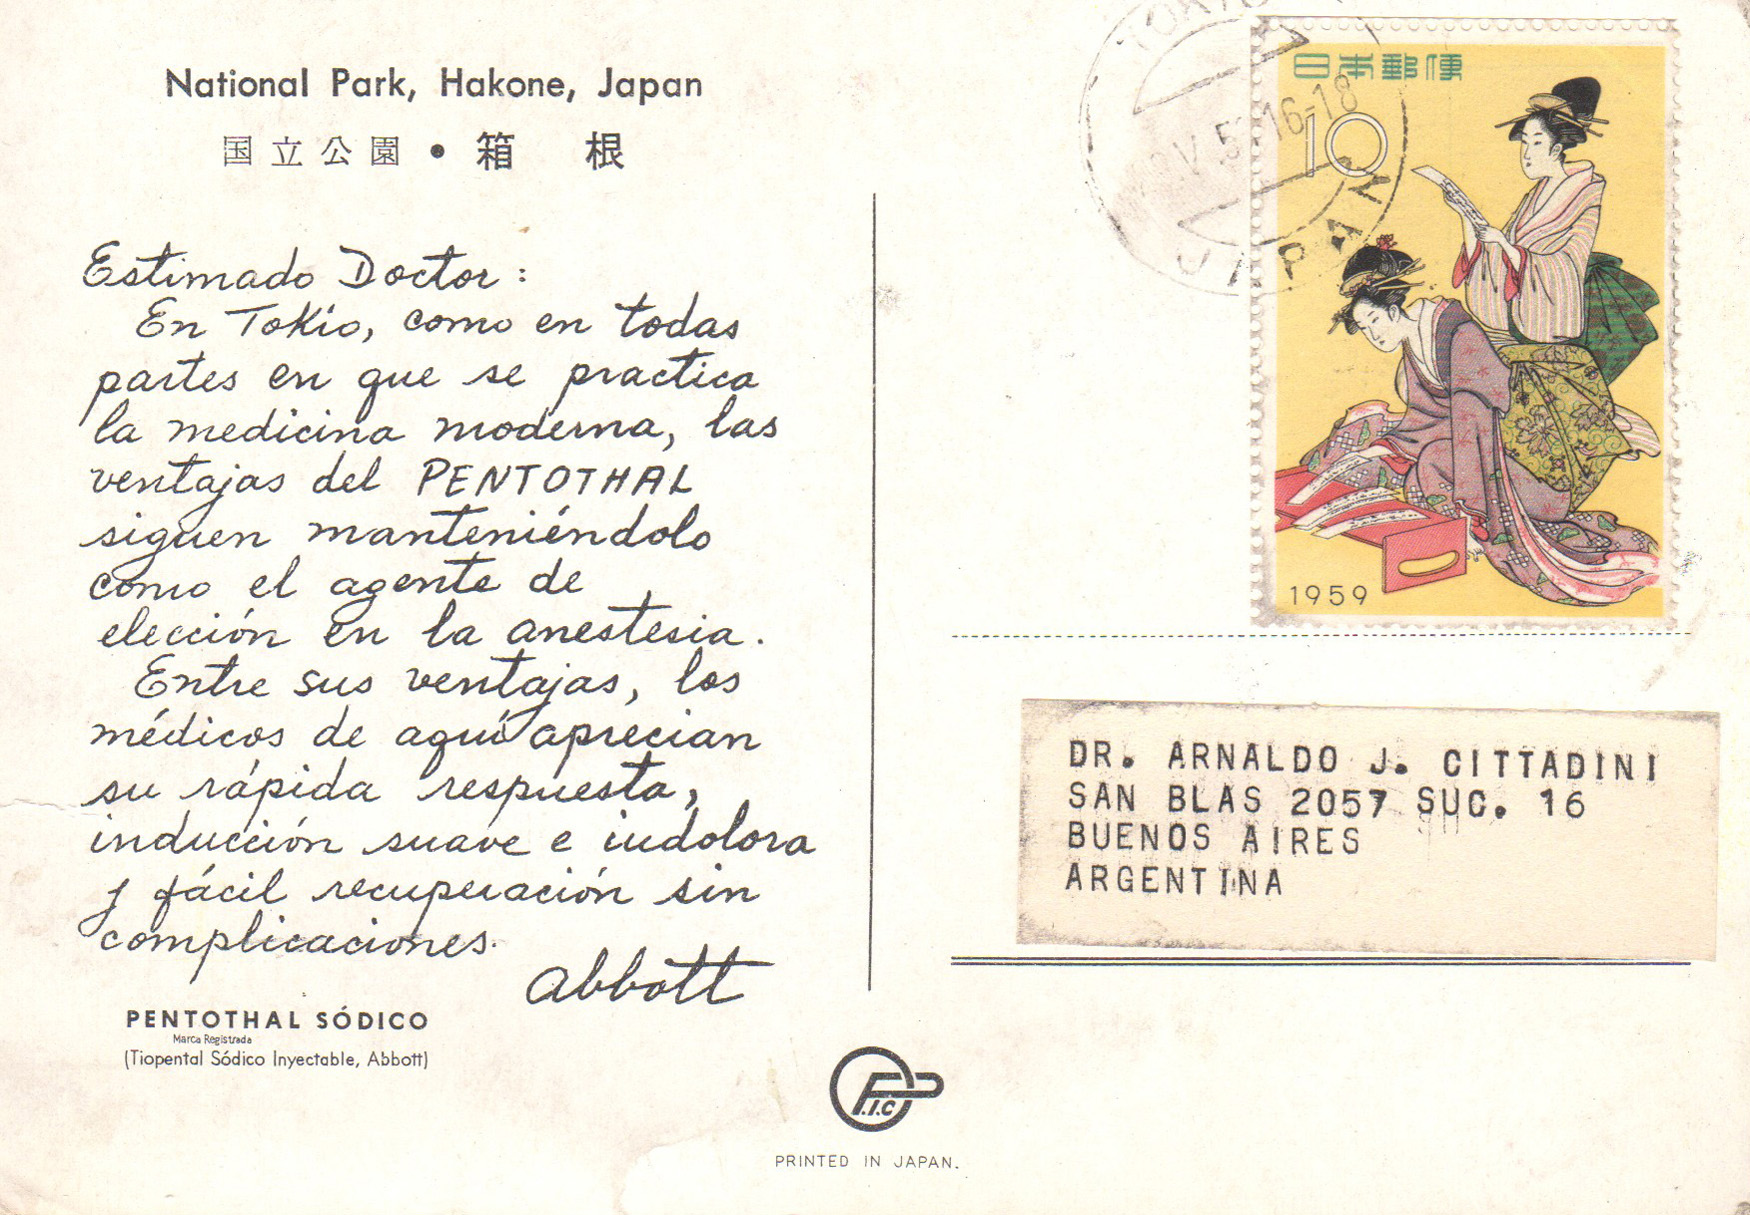 National Park, Hakone, Japan
国立公園・箱根
Estimado Doctor:
En Tokio, como en todas
partes en que se practica
la medicina moderna, las
ventajas del PENTOTHAL
siguen manteniéndolo
como el agente de
elección en la anestesia.
Entre sus ventajas, los
médicos de aquí aprecian
su rápida respuesta,
inducción suave e indolora
y fácil recuperación sin
complicaciones.
Abbott
PENTOTHAL SÓDICO
Marca Registrada
(Tiopental Sódico Inyectable, Abbott)
P.I.C
PRINTED IN JAPAN.
TOKYO
16-18
JAPAN
日本郵便
10
1959
DR. ARNALDO J. CITTADINI
SAN BLAS 2057 SUC. 16
BUENOS AIRES
ARGENTINA